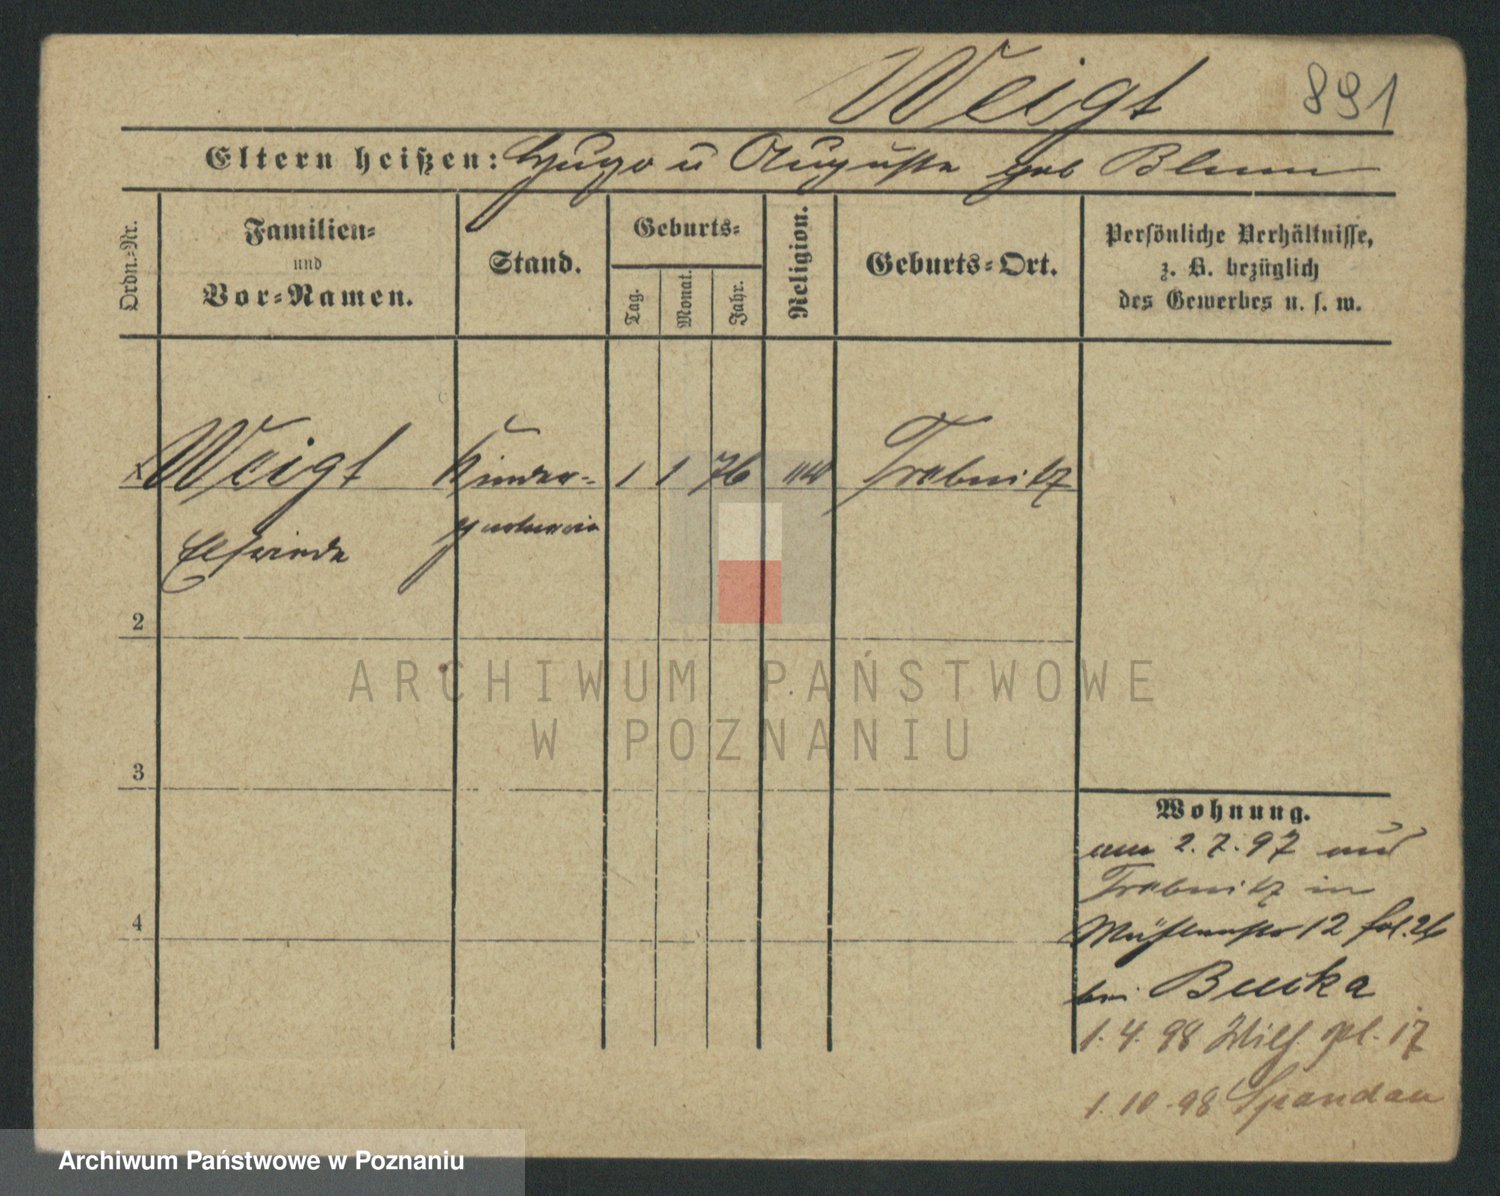 Weigt 891
Eltern heißen: Hugo u Auguste geb Blum
Ordn.-Nr.
Familien-
und
Vor-Namen.
Stand.
Geburts-
Tag.
Monat.
Jahr.
Religion.
Geburts-Ort.
Persönliche Verhältnisse,
z. B. bezüglich
des Gewerbes u. s. w.
1 Weigt Kinder- 1 1 76 Trebnitz
Elfriede gärtnerin
2
3
4
Wohnung.
am 2.7.97 aus
Trebnitz in
Mühlenstr 12 fol. 26
bei
1. 4. 98 pl. 17
1. 10. 98 Spandau
ARCHIWUM PAŃSTWOWE
W POZNANIU
Archiwum Państwowe w Poznaniu